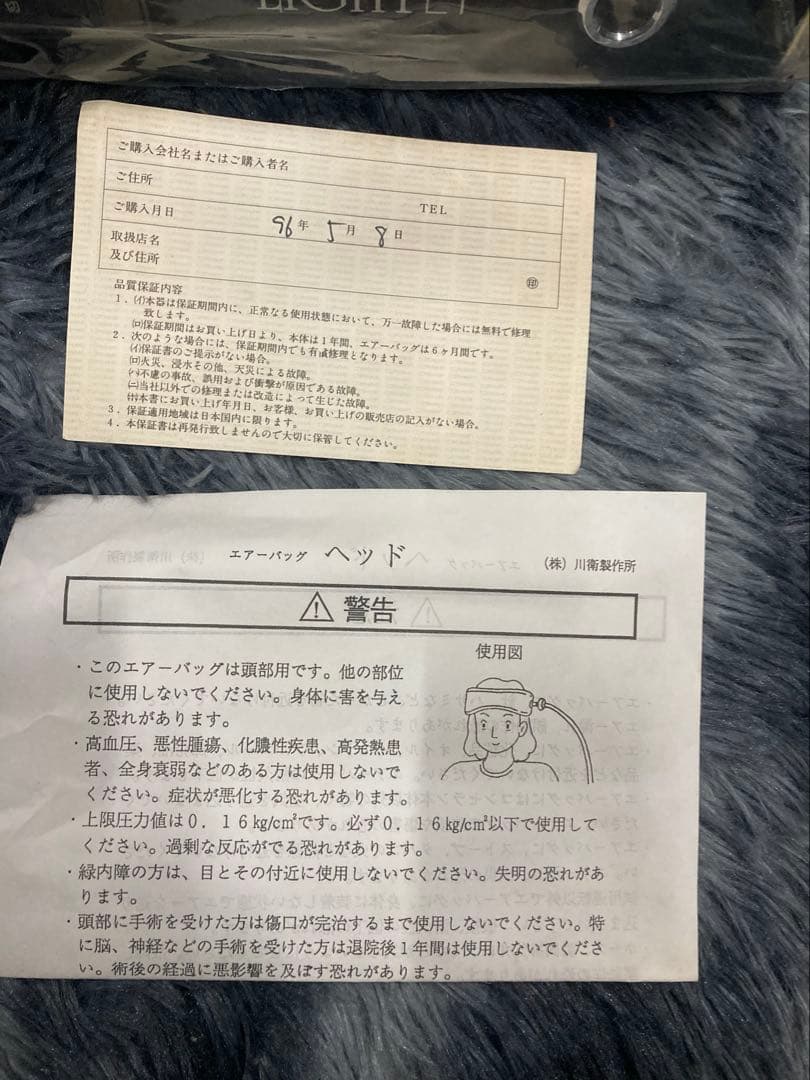 ご購入会社名またはご購入者名
ご住所
TEL
ご購入月日 96年 5月 8日
取扱店名
及び住所
印
品質保証内容
1．(イ)本器は保証期間内に、正常なる使用状態において、万一故障した場合には無料で修理
致します。
(ロ)保証期間はお買い上げ日より、本体は1年間、エアーバッグは6ヶ月間です。
2．次のような場合には、保証期間内でも有料修理となります。
(イ)保証書のご提示がない場合。
(ロ)火災、浸水その他、天災による故障。
(ハ)不慮の事故、誤用および衝撃が原因である故障。
(ニ)当社以外での修理または改造によって生じた故障。
(ホ)本書にお買い上げ年月日、お客様、お買い上げの販売店の記入がない場合。
3．保証適用地域は日本国内に限ります。
4．本保証書は再発行致しませんので大切に保管してください。
エアーバッグ ヘッド (株)川衛製作所
⚠ 警告
使用図
・このエアーバッグは頭部用です。他の部位
に使用しないでください。身体に害を与え
る恐れがあります。
・高血圧、悪性腫瘍、化膿性疾患、高発熱患
者、全身衰弱などのある方は使用しないで
ください。症状が悪化する恐れがあります。
・上限圧力値は0．16kg/c㎡です。必ず0．16kg/c㎡以下で使用して
ください。過剰な反応がでる恐れがあります。
・緑内障の方は、目とその付近に使用しないでください。失明の恐れがあ
ります。
・頭部に手術を受けた方は傷口が完治するまで使用しないでください。特
に脳、神経などの手術を受けた方は退院後1年間は使用しないでくださ
い。術後の経過に悪影響を及ぼす恐れがあります。